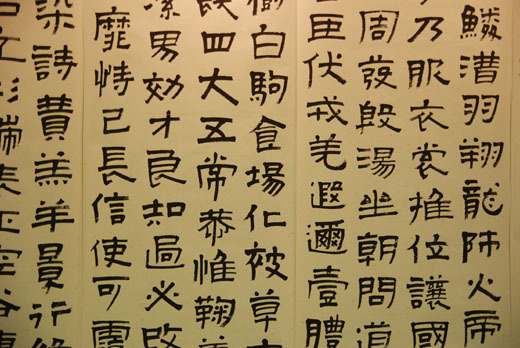 鱗潛羽翔龍師火帝
乃服衣裳推位讓國
周發殷湯坐朝問道
臣伏戎羌遐邇壹體
白駒食場化被草
四大五常恭惟鞠
潔男效才良知過必改
靡恃己長信使可覆
染詩讚羔羊景行維
立形端表正空谷